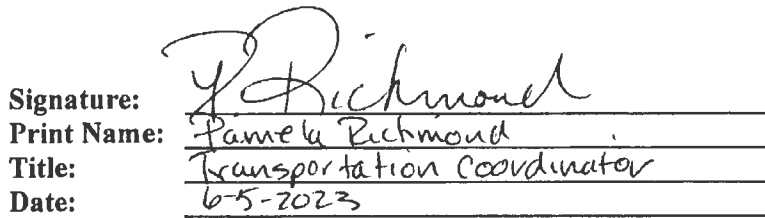 Signature: P Richmond
Print Name: Pamela Richmond
Title: Transportation Coordinator
Date: 6-5-2023